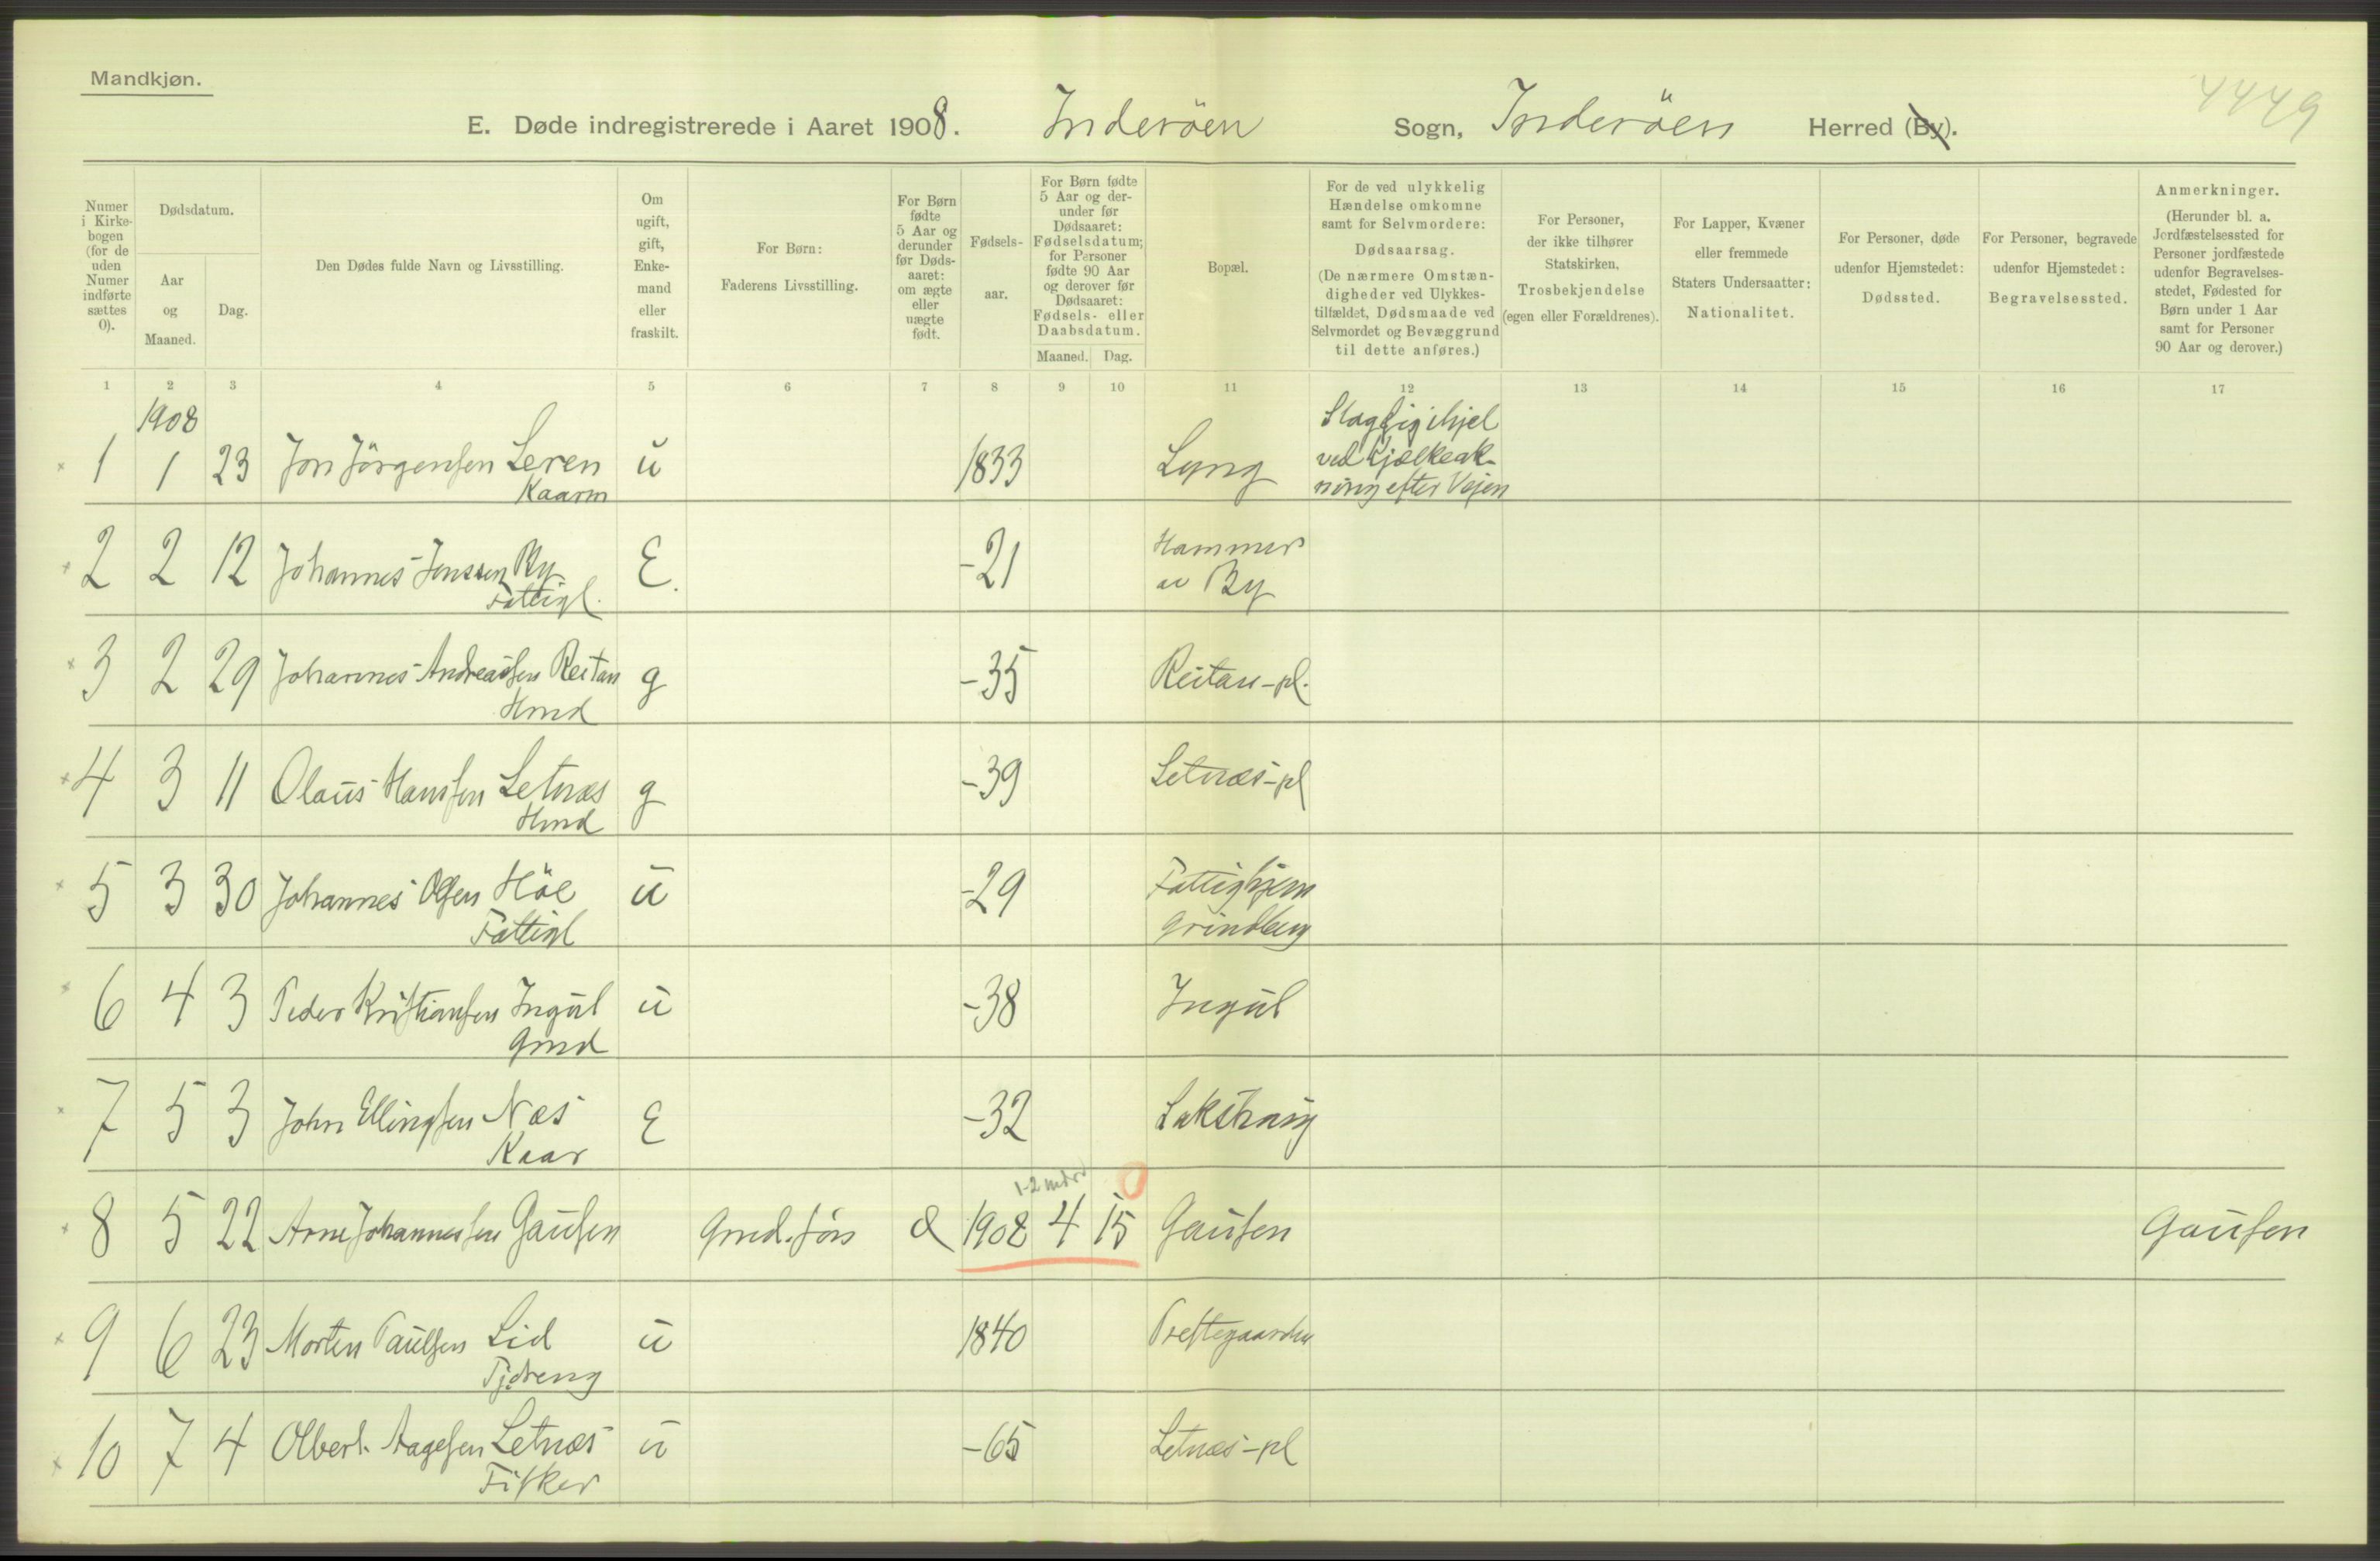 Mandkjøn.
4449
E. Døde indregistrerede i Aaret 1908. Inderöen Sogn, Inderöen Herred (By).
Numer i Kirke-bogen (for de uden Numer indførte sættes 0).
Dødsdatum.
Aar og Maaned.
Dag.
Den Dødes fulde Navn og Livsstilling.
Om ugift, gift, Enke-mand eller fraskilt.
For Børn: Faderens Livsstilling.
For Børn fødte 5 Aar og derunder før Døds-aaret: om ægte eller uægte født.
Fødsels-aar.
For Børn fødte 5 Aar og der-under før Dødsaaret: Fødselsdatum; for Personer fødte 90 Aar og derover før Dødsaaret: Fødsels- eller Daabsdatum.
Maaned. Dag.
Bopæl.
For de ved ulykkelig Hændelse omkomne samt for Selvmordere: Dødsaarsag. (De nærmere Omstæn-digheder ved Ulykkes-tilfældet, Dødsmaade ved Selvmordet og Bevæggrund til dette anføres.)
For Personer, der ikke tilhører Statskirken, Trosbekjendelse (egen eller Forældrenes).
For Lapper, Kvæner eller fremmede Staters Undersaatter: Nationalitet.
For Personer, døde udenfor Hjemstedet: Dødssted.
For Personer, begravede udenfor Hjemstedet: Begravelsessted.
Anmerkninger. (Herunder bl. a. Jordfæstelsessted for Personer jordfæstede udenfor Begravelses-stedet, Fødested for Børn under 1 Aar samt for Personer 90 Aar og derover.)
1 2 3 4 5 6 7 8 9 10 11 12 13 14 15 16 17
1908
1 1 23 Jon Jörgensen Leren u 1833 Lyng Slog sig ihjel
Kaarm ved Kjælkeak-
ning efter Vejen
2 2 12 Johannes Jenssen By E. -21 Hammer
Fattigl. av By
3 2 29 Johannes Andreassen Reitan g -35 Reitan-pl.
Hmd
4 3 11 Olaus Hansen Letnæs g -39 Letnæs-pl
Hmd
5 3 30 Johannes Olsen Höe u -29 Fattighjem
Fattigl Grindberg
6 4 3 Peder Kristiansen Ingul u -38 Ingul
Gmd
7 5 3 John Ellingsen Næs E -32 Lakshaug
Kaar
1-2 mdr 0
8 5 22 Arne Johannessen Gausen Gmd. sön 1908 4 15 Gausen Gausen
9 6 23 Morten Paulsen Lid u 1840 Prestegaarden
Tjdreng
10 7 4 Olbert Aagesen Letnæs u -65 Letnæs-pl
Fisker